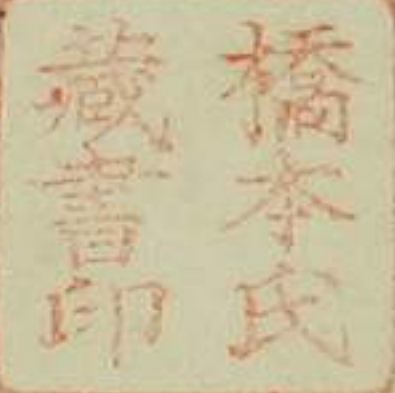 橋本氏
藏書印